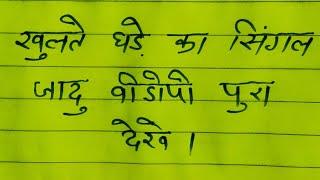 खुलते घड़े का सिंगल
जादु वीडीपो पुरा
देखे ।